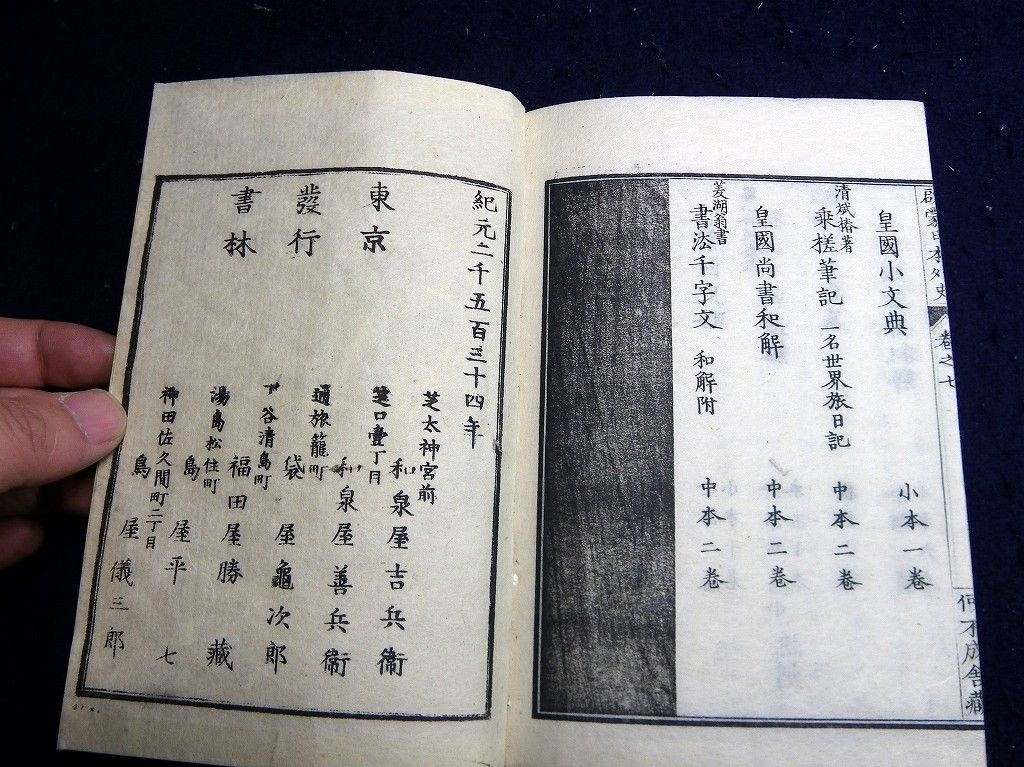 啓蒙日本外史
卷之七
何不成舍藏
皇國小文典
小本一卷
清斌椿著
乘槎筆記 一名世界旅日記
中本二卷
皇國尚書和解
中本二卷
菱湖翁書
書法千字文 和解附
中本二卷
紀元二千五百三十四年
東京
發行
書林
芝太神宮前
和泉屋吉兵衞
芝口壹丁目
和泉屋善兵衞
通旅籠町
袋屋龜次郎
下谷清島町
福田屋勝藏
湯島松住町
島屋平七
神田佐久間町二丁目
島屋儀三郎